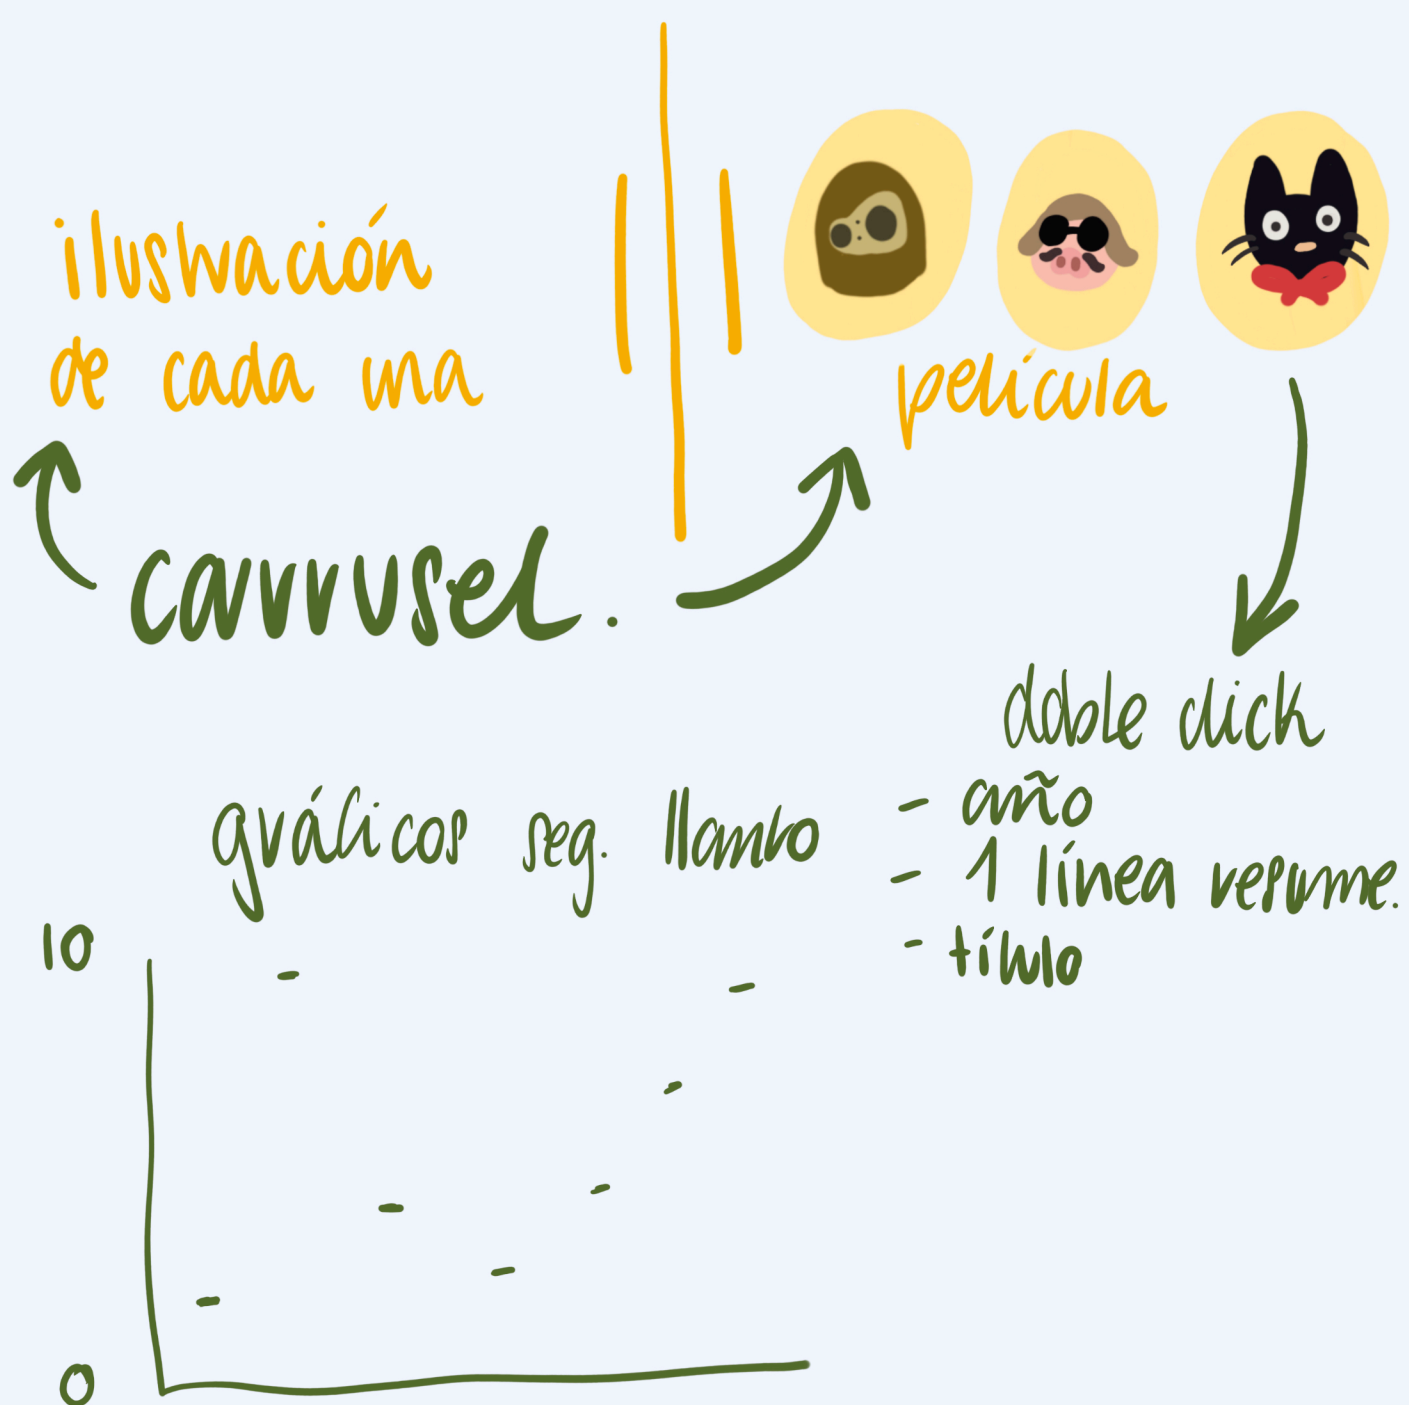 ilustración
de cada una
película
carrusel.
doble click
- año
- 1 línea resume.
- título
gráficos seg. llanto
10
0